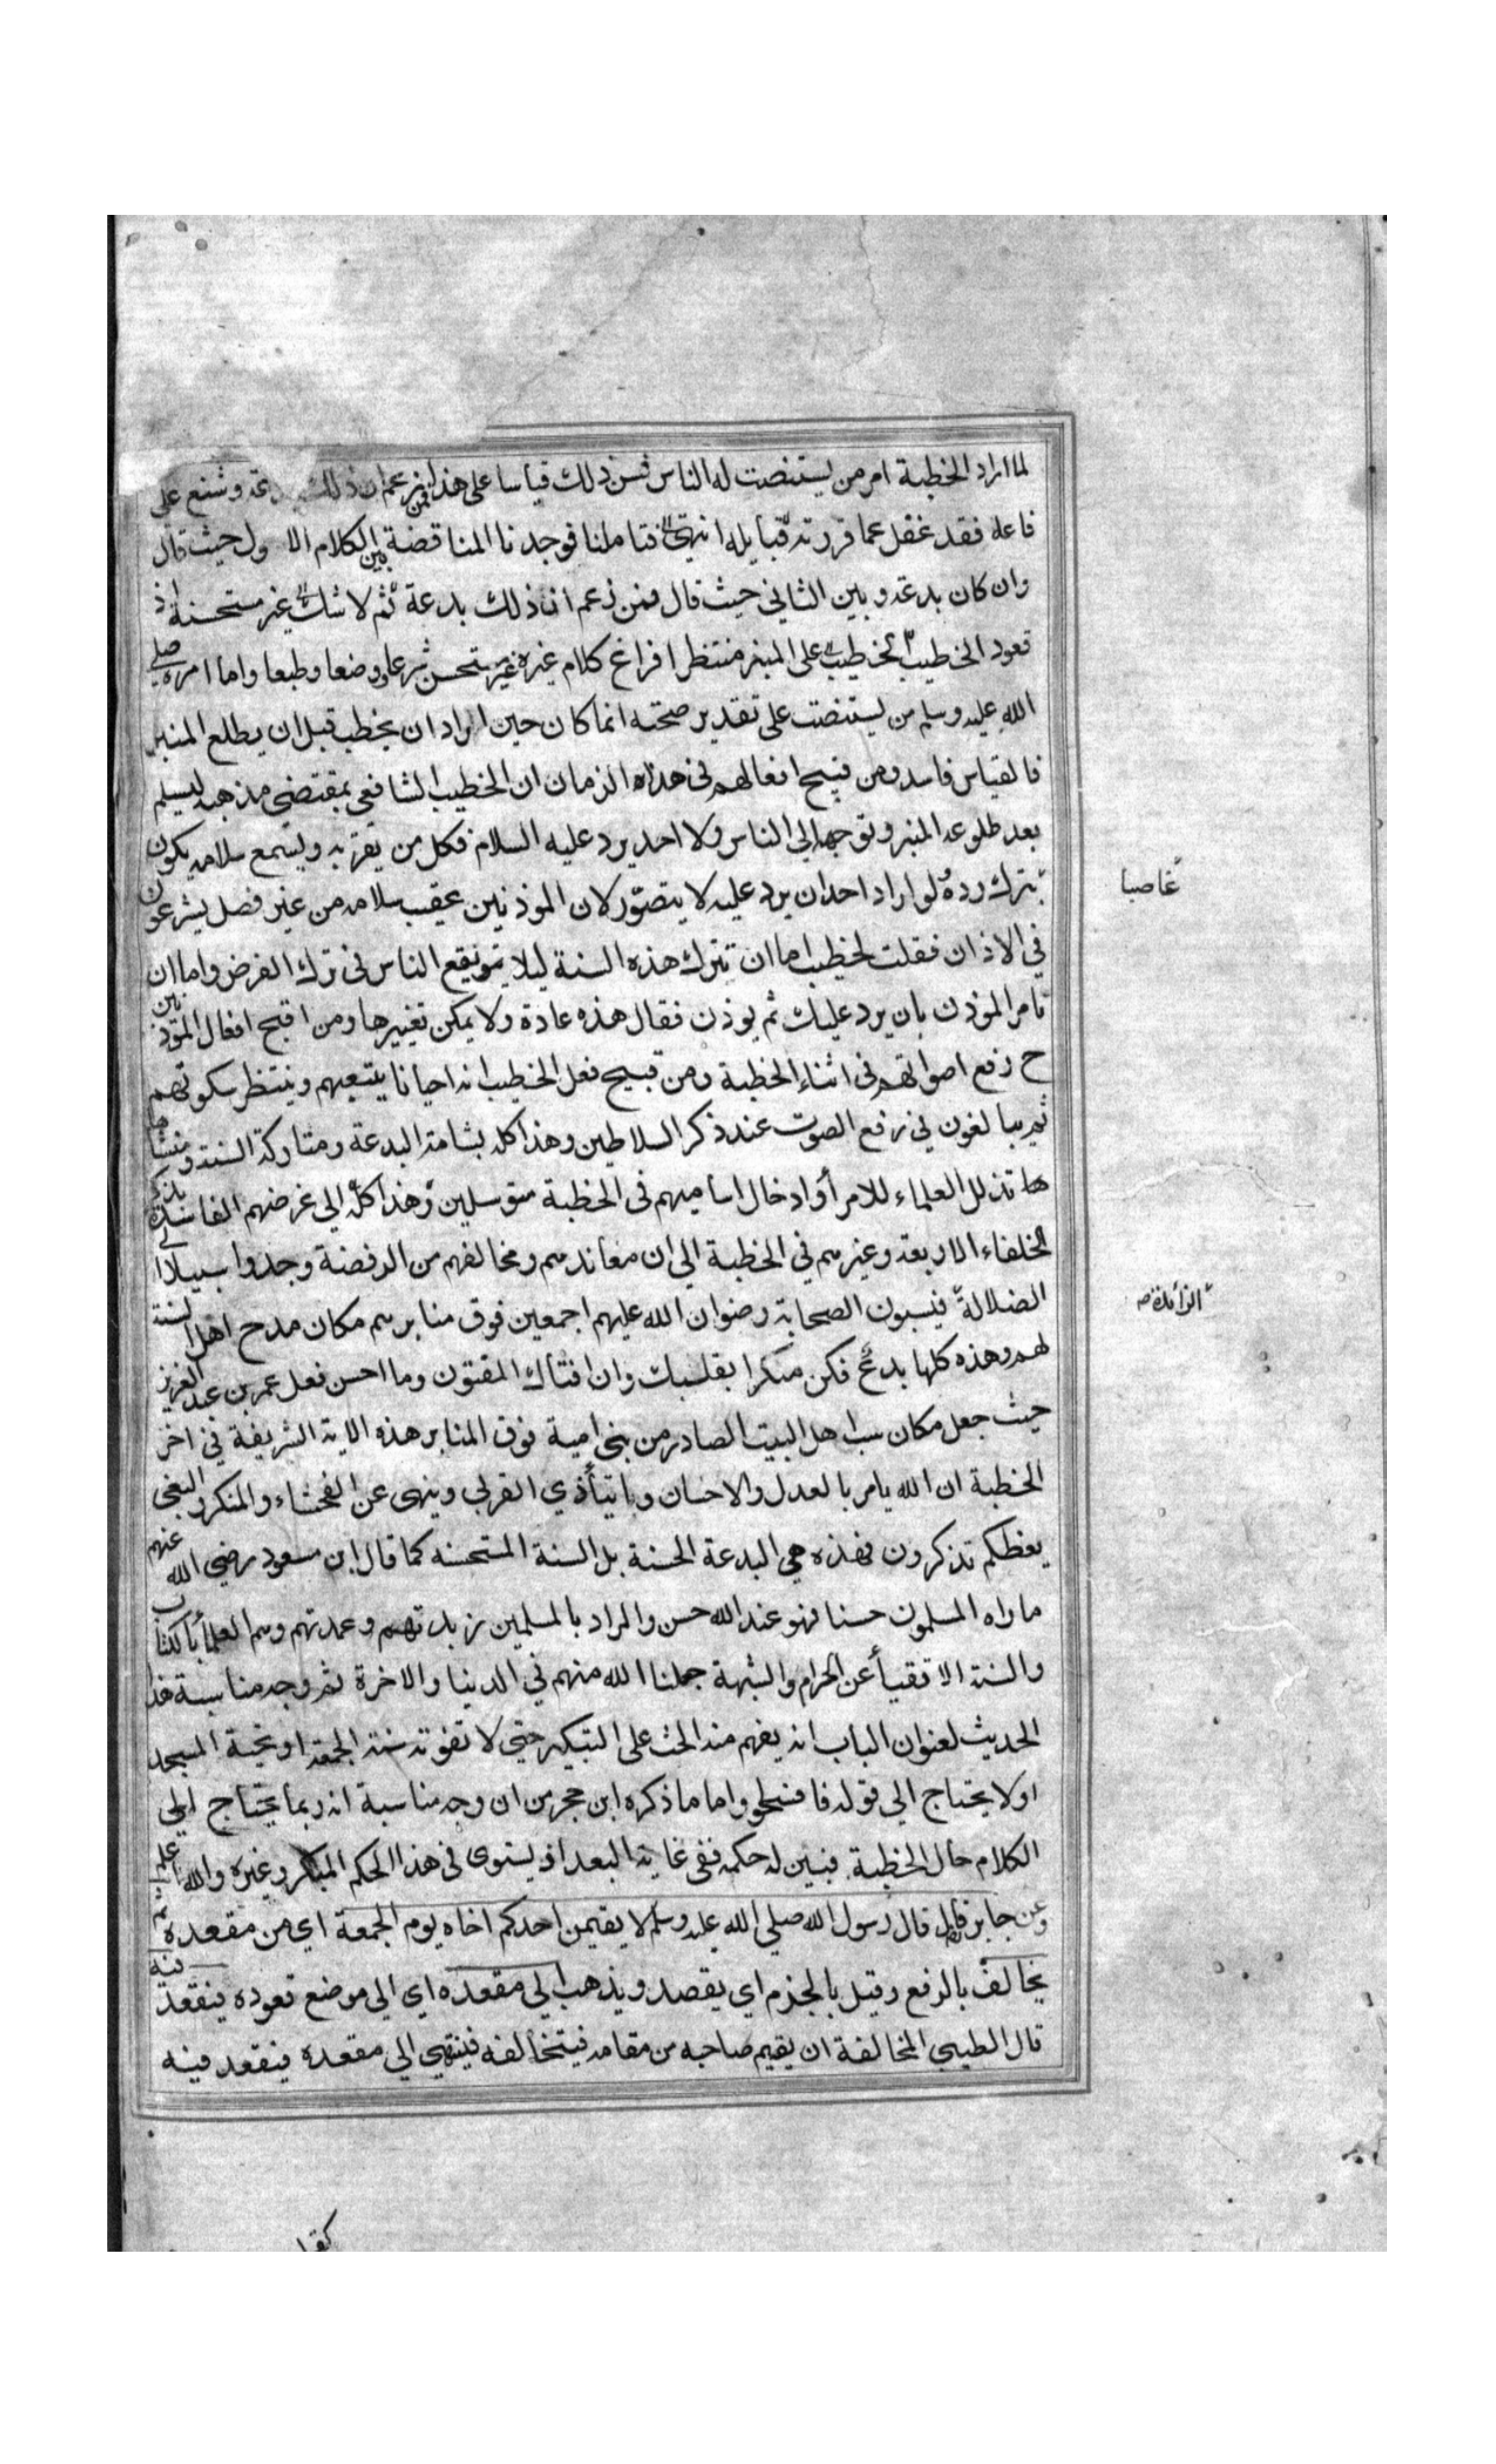 لما اراد الخطبة امر من يستنصت له الناس فسن ذلك قياسا على هذا فمن زعم ان ذلك بدعة وشنع على
فاعله فقد غفل عما قررته قبايله انتهى فتاملنا فوجدنا المناقضة بين الكلام الا ول حيث قال
وان كان بدعة وبين الثاني حيث قال فمن زعم ان ذلك بدعة ثم لا شك غير مستحسنة اذ
قعود الخطيب على المنبر منتظرا فراغ كلام غيره غير مستحسن شرعا ووضعا وطبعا واما امره صلي
الله عليه وسلم من يستنصت على تقدير صحته انما كان حين اراد ان يخطب قبل ان يطلع المنبر
فالقياس فاسد ومن قبيح افعالهم في هذاه الزمان ان الخطيب الشافعي بمقتضى مذهبه ليسلم
بعد طلوعه المنبر وتوجهه الي الناس ولا احد يرد عليه السلام فكل من يقربه ويسمع سلامه يكون
بترك رده لو اراد احد ان يرد عليه لا يتصور لان الموذنين عقيب سلامه من غير فصل يشرعون
غاصبا
في الاذان فقلت لخطيب اما ان تترك هذه السنة ليلا يقع الناس في ترك الفرض واما ان
تامر الموذن بان يرد عليك ثم يوذن فقال هذه عادة ولا يمكن تغييرها ومن اقبح افعال الموذنين
ح رفع اصواتهم في اثناء الخطبة ومن قبيح فعل الخطيب انه احيانا يتبعهم وينتظر سكوتهم
ثم يبالغون في رفع الصوت عند ذكر السلاطين وهذا كله بشامة البدعة ومتاركة السنة ومنشا
ها تذلل العلماء للامرأ وادخال اساميهم في الخطبة متوسلين وهذا كله الي غرضهم الفاسدة بذكر
الخلفاء الاربعة وغيرهم في الخطبة الي ان معاندهم ومخالفهم من الرفضة وجدوا سبيلا الي
الضلالة فيسبون الصحابة رضوان الله عليهم اجمعين فوق منابرهم مكان مدح اهل السنة
الزائدة صح
لهم وهذه كلها بدع فكن منكرا بقلبك وان افتاك المفتون وما احسن فعل عمر بن عبد العزيز
حيث جعل مكان سب اهل البيت الصادر من بني امية فوق المنابر هذه الاية الشريفة في اخر
الخطبة ان الله يامر بالعدل والاحسان وايتاء ذي القربي وينهى عن الفحشاء والمنكر والبغي
يعظكم تذكرون فهذه هي البدعة الحسنة بل السنة المستحسنه كما قال ابن مسعود رضي الله عنهم
ماراه المسلمون حسنا فهو عند الله حسن والمراد بالمسلمين زبدتهم وعمدتهم وهم العلماء بالكتاب
والسنة الاتقيأ عن الحرام والشبهة جملنا الله منهم في الدينا والاخرة ثم وجه مناسبة هذا
الحديث لعنوان الباب انه يفهم منه الحث على التبكير حتي لا تفوته سنة الجمعة او تحية المسجد
اولا يحتاج الي قوله فا واما ما ذكره ابن حجر من ان وجه مناسبة انه ربما يحتاج الي
الكلام حال الخطبة فبين له حكمه ففي غاية البعد اذ يستوى في هذا الحكم المبكر وغيره والله اعلم
وعن جابر قال قال رسول الله صلي الله عليه وسلم لا يقيمن احدكم اخاه يوم الجمعة اي من مقعده ثم
يخالف بالرفع وقيل بالجزم اي يقصد ويذهب الي مقعده اي الي موضع قعوده فيقعد فيه
قال الطيبي المخالفة ان يقيم صاحبه من مقامه فيتخالفه فينتهي الي مقعده فيقعد فيه